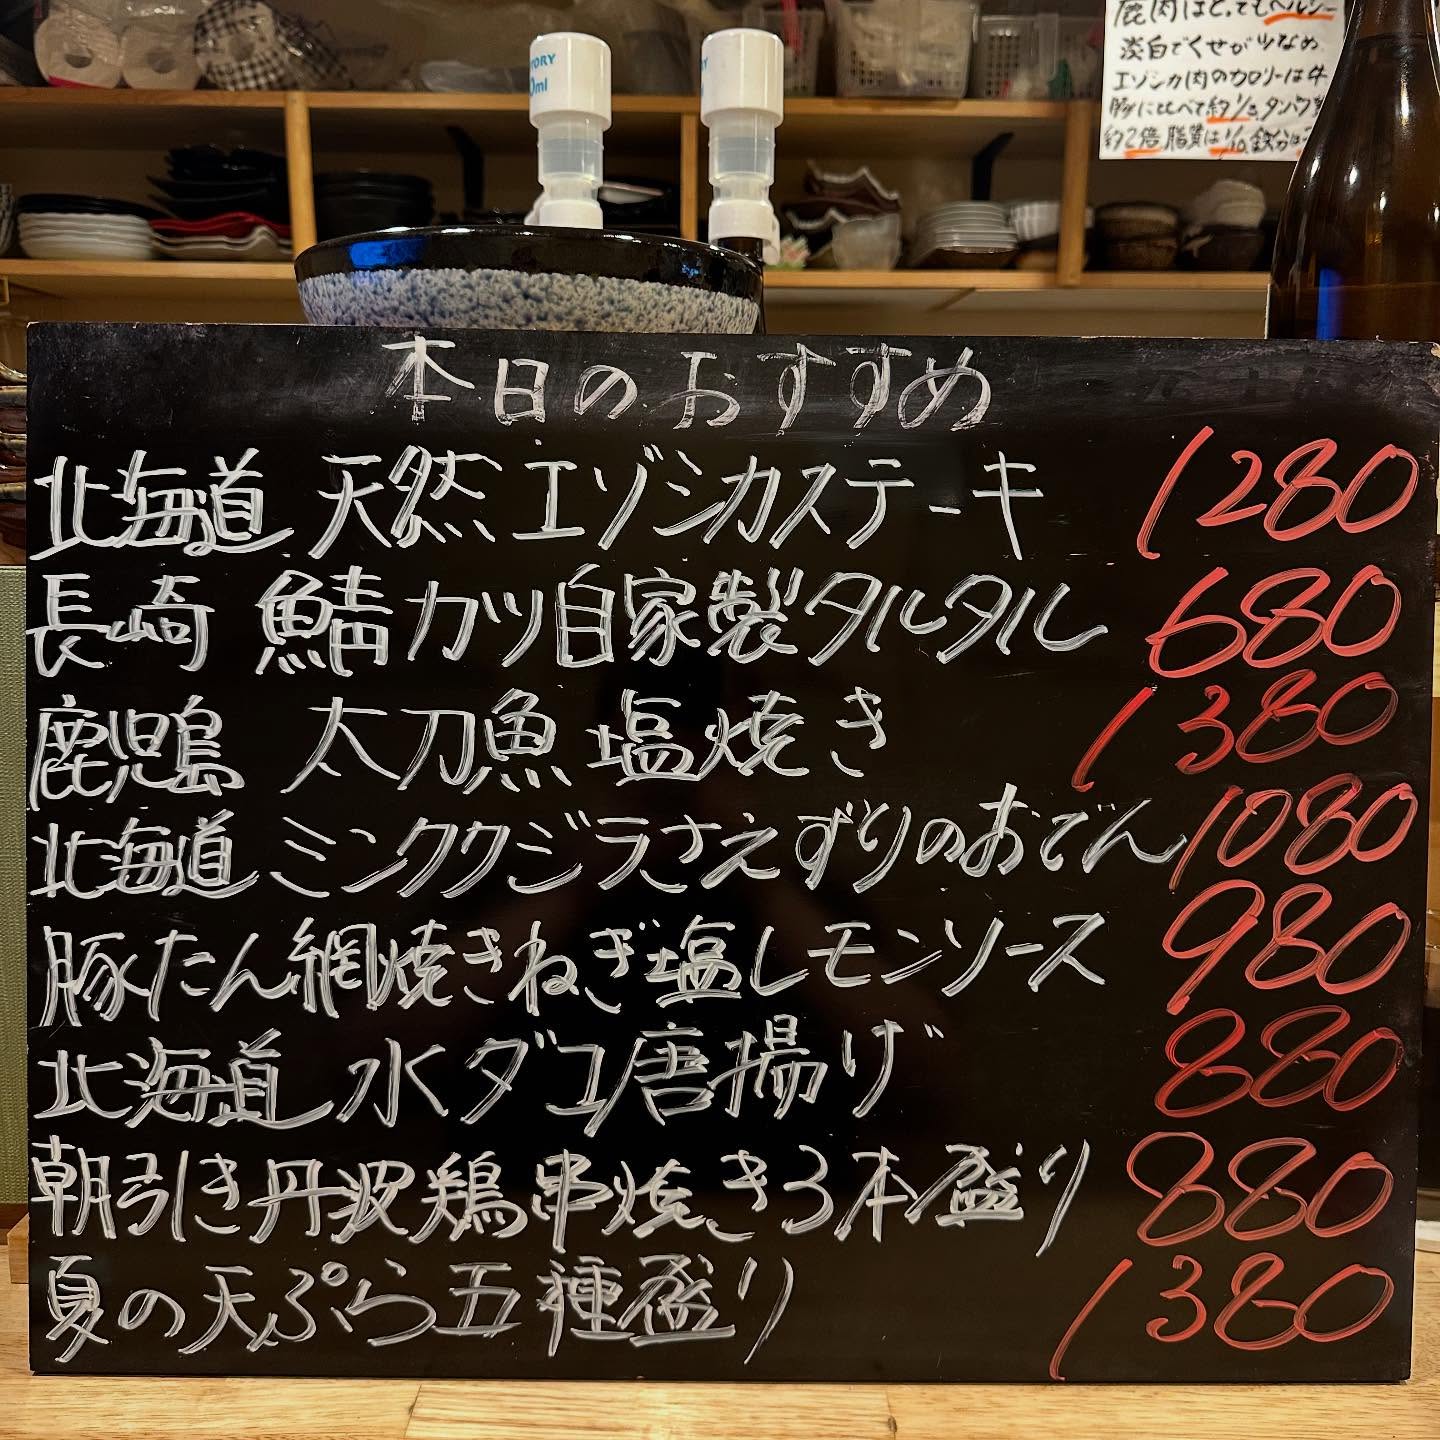 鹿肉はとってもヘルシー
淡白でくせが少なめ
エゾシカ肉のカロリーは牛
豚に比べて約1/3、タンパク
約2倍脂質は1/10鉄分は
本日のおすすめ
北海道 天然エゾシカステーキ 1280
長崎 鯖カツ自家製タルタル 680
鹿児島 太刀魚塩焼き 1380
北海道 ミンククジラさえずりのおでん 1080
豚たん網焼きねぎ塩レモンソース 980
北海道 水ダコ唐揚げ 880
朝引き丹波鶏串焼き3本盛り 880
夏の天ぷら五種盛り 1380